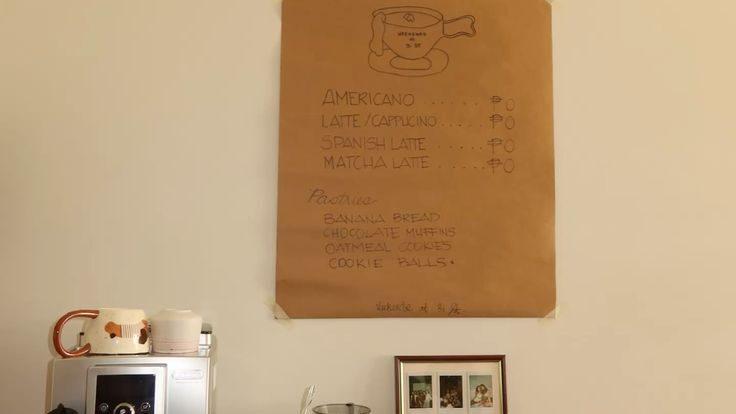 WEEKENDS
at
31 ST
AMERICANO ...... ₱0
LATTE/CAPPUCINO ..... ₱0
SPANISH LATTE .... ₱0
MATCHA LATTE ..... ₱0
Pastries
BANANA BREAD
CHOCOLATE MUFFINS
OATMEAL COOKIES
COOKIE BALLS
at